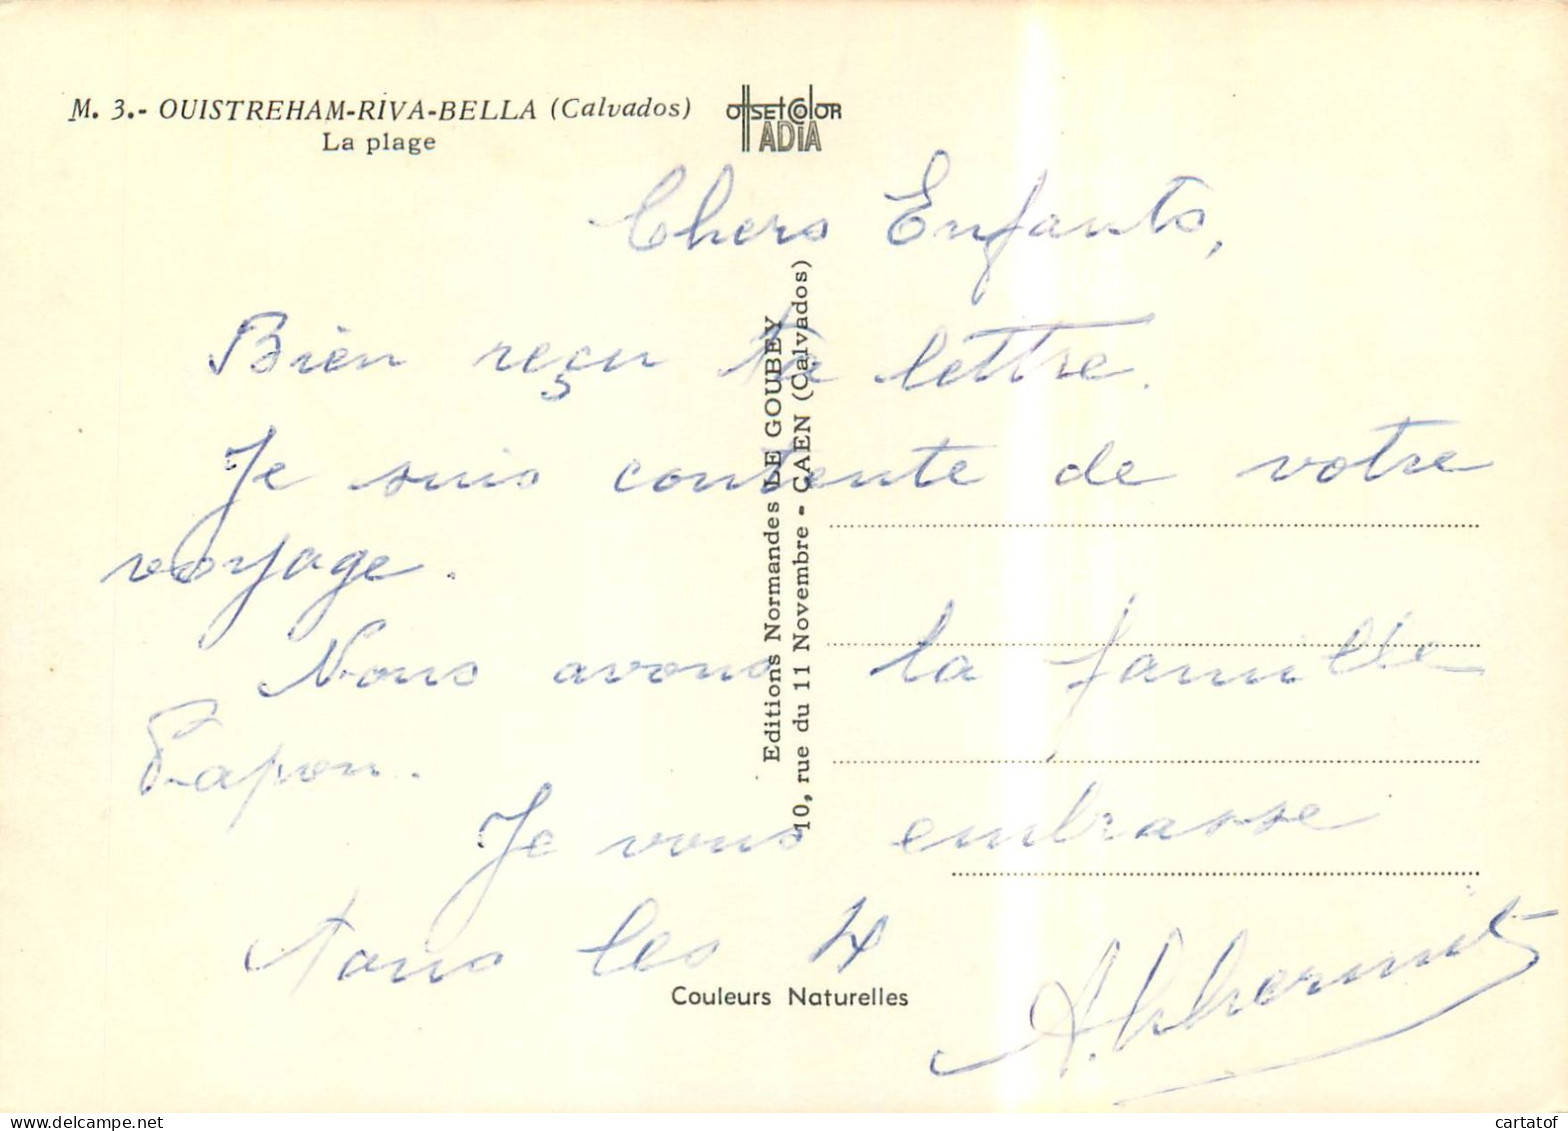 M. 3.- OUISTREHAM-RIVA-BELLA (Calvados)
La plage
offsetColor
ADIA
Chers Enfants,
Bien reçu ta lettre.
Je suis contente de votre
voyage.
Nous avons la famille
Papon.
Je vous embrasse
tous les 4
A. Lhermit
Editions Normandes LE GOUBEY
10, rue du 11 Novembre - CAEN (Calvados)
Couleurs Naturelles
delcampe.net
cartatof